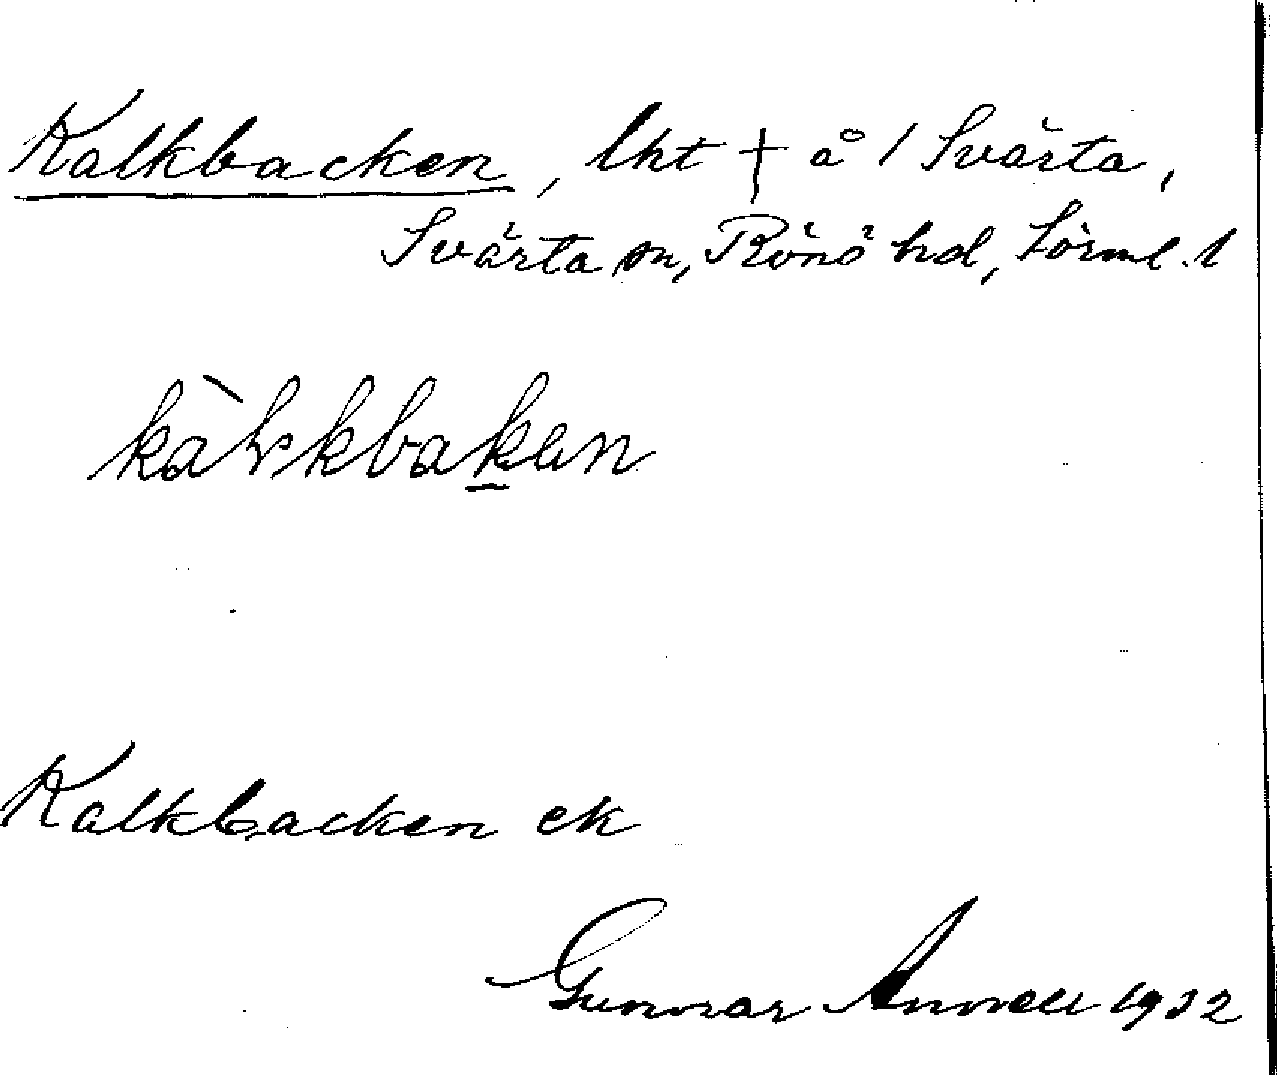 Kalkbacken, lht † å 1 Svärta,
Svärta sn, Rönö hd, Sörml. l
kàlkbaken
Kalkbacken ek
Gunnar Annell 1932